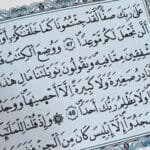 عَلَىٰ رَبِّكَ صَفًّا لَّقَدْ جِئْتُمُونَا كَمَا خَلَقْنَٰكُمْ
نَّجْعَلَ لَكُم مَّوْعِدًا ٤٨ وَوُضِعَ ٱلْكِتَٰبُ
مُشْفِقِينَ مِمَّا فِيهِ وَيَقُولُونَ يَٰوَيْلَتَنَا مَالِ هَٰذَا
صَغِيرَةً وَلَا كَبِيرَةً إِلَّآ أَحْصَىٰهَا وَوَجَدُوا۟
وَلَا يَظْلِمُ رَبُّكَ أَحَدًا ٤٩ وَإِذْ قُلْنَا لِلْمَلَٰٓئِكَةِ
إِلَّآ إِبْلِيسَ كَانَ مِنَ ٱلْجِنِّ